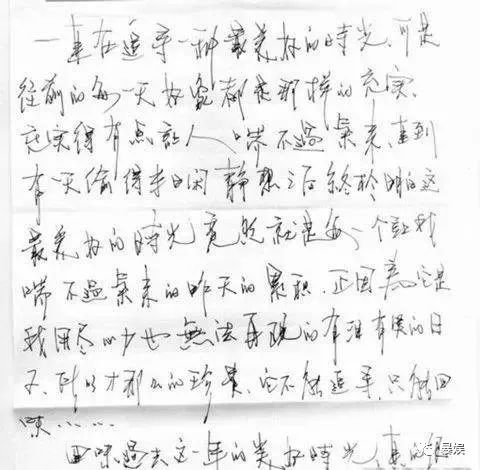 一直在追寻一种最美好的時光,可是
前的每一天好象都是那样的充实,
充实得有点让人喘不過氣来,直到
有一天偷得半日闲静想之后终於明白这
最美好的時光竟然就是每一个让我
喘不過氣来的昨天的累积.正因為它是
我用尽心力也無法再现的有泪有笑的日
子,所以才那么的珍贵,它不能追寻,只能回
味……
回味過去这一年的美好時光,真的
暴娱